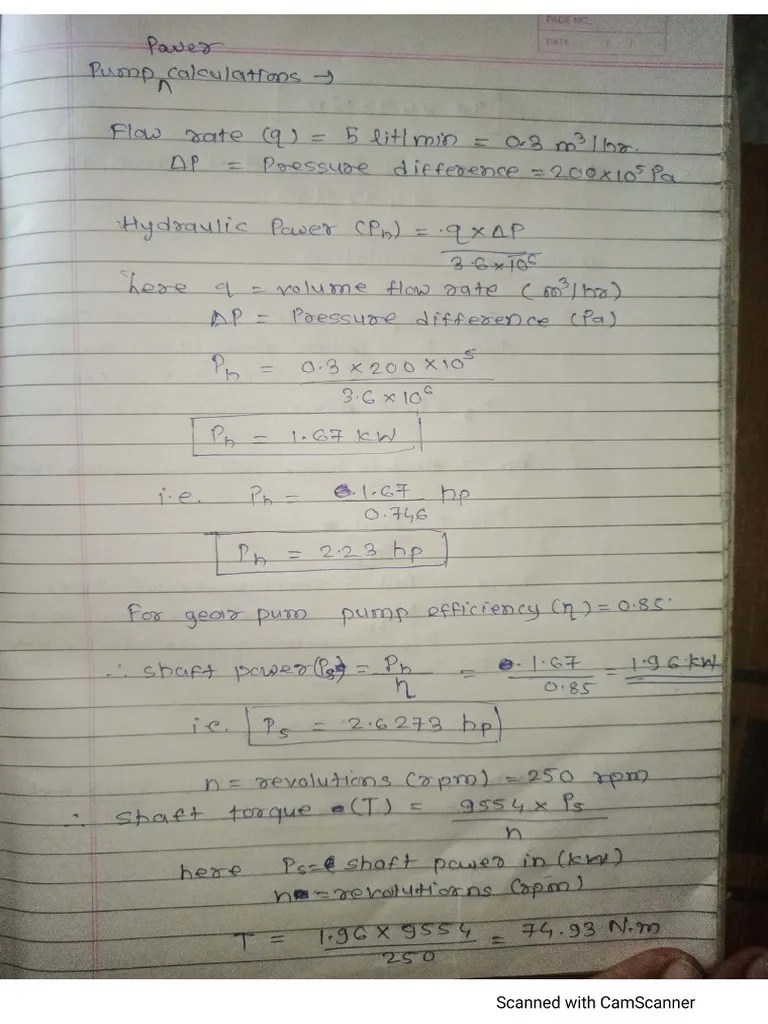 PAGE NO.
DATE / /
Power
Pump ^ calculations →
Flow rate (q) = 5 lit/min = 0.3 m³/hr.
ΔP = Pressure difference = 200×10⁵ Pa
Hydraulic Power (Ph) = q × ΔP / 3.6×10⁶
here q = volume flow rate (m³/hr)
ΔP = Pressure difference (Pa)
Ph = 0.3 × 200 × 10⁵ / 3.6 × 10⁶
Ph = 1.67 KW
i.e. Ph = 1.67 / 0.746 hp
Ph = 2.23 hp
For gear pum pump efficiency (η) = 0.85
∴ shaft power (Ps) = Ph / η = 1.67 / 0.85 = 1.96 KW
i.e. Ps = 2.6273 hp
n = revolutions (rpm) = 250 rpm
∴ Shaft torque (T) = 9554 × Ps / n
here Ps = shaft power in (kw)
n = revolutions (rpm)
T = 1.96 × 9554 / 250 = 74.93 N.m
Scanned with CamScanner